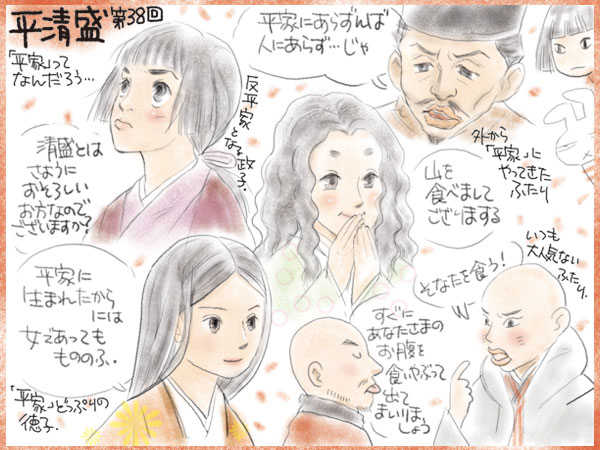 平清盛 第38回
「平家」って
なんだろう…
平家にあらずんば
人にあらず…じゃ
反平家
となる政子.
清盛とは
さように
おそろしい
お方なので
ございますか?
外から
「平家」に
やってきた
ふたり
山を
食べまして
ございまする
いつも
大人気ない
ふたり.
そなたを食う!
平家に
生まれたから
には
女であっても
もののふ.
「平家」どっぷりの
徳子.
すぐに
あなたさまの
お腹を
食いやぶって
出て
まいりましょう